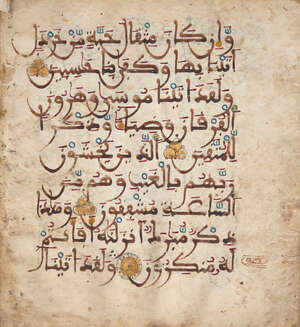 وَإِن كَانَ مِثْقَالَ حَبَّةٍ مِّنْ خَرْدَلٍ
أَتَيْنَا بِهَا وَكَفَىٰ بِنَا حَٰسِبِينَ
وَلَقَدْ ءَاتَيْنَا مُوسَىٰ وَهَٰرُونَ
ٱلْفُرْقَانَ وَضِيَآءً وَذِكْرًا
لِّلْمُتَّقِينَ ٱلَّذِينَ يَخْشَوْنَ
رَبَّهُم بِٱلْغَيْبِ وَهُم مِّنَ
ٱلسَّاعَةِ مُشْفِقُونَ وَهَٰذَا
ذِكْرٌ مُّبَٰرَكٌ أَنزَلْنَٰهُ أَفَأَنتُمْ
لَهُۥ مُنكِرُونَ وَلَقَدْ ءَاتَيْنَآ